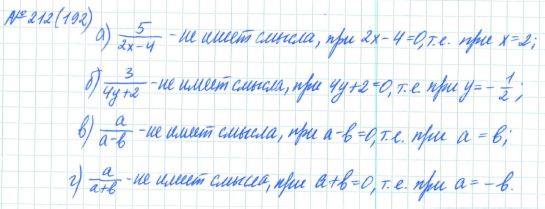 №212(192) а) 5/(2x-4) - не имеет смысла, при 2x-4=0, т.е. при x=2;
б) 3/(4y+2) - не имеет смысла, при 4y+2=0, т.е. при y=-1/2;
в) a/(a-b) - не имеет смысла, при a-b=0, т.е. при a=b;
г) a/(a+b) - не имеет смысла, при a+b=0, т.е. при a=-b.